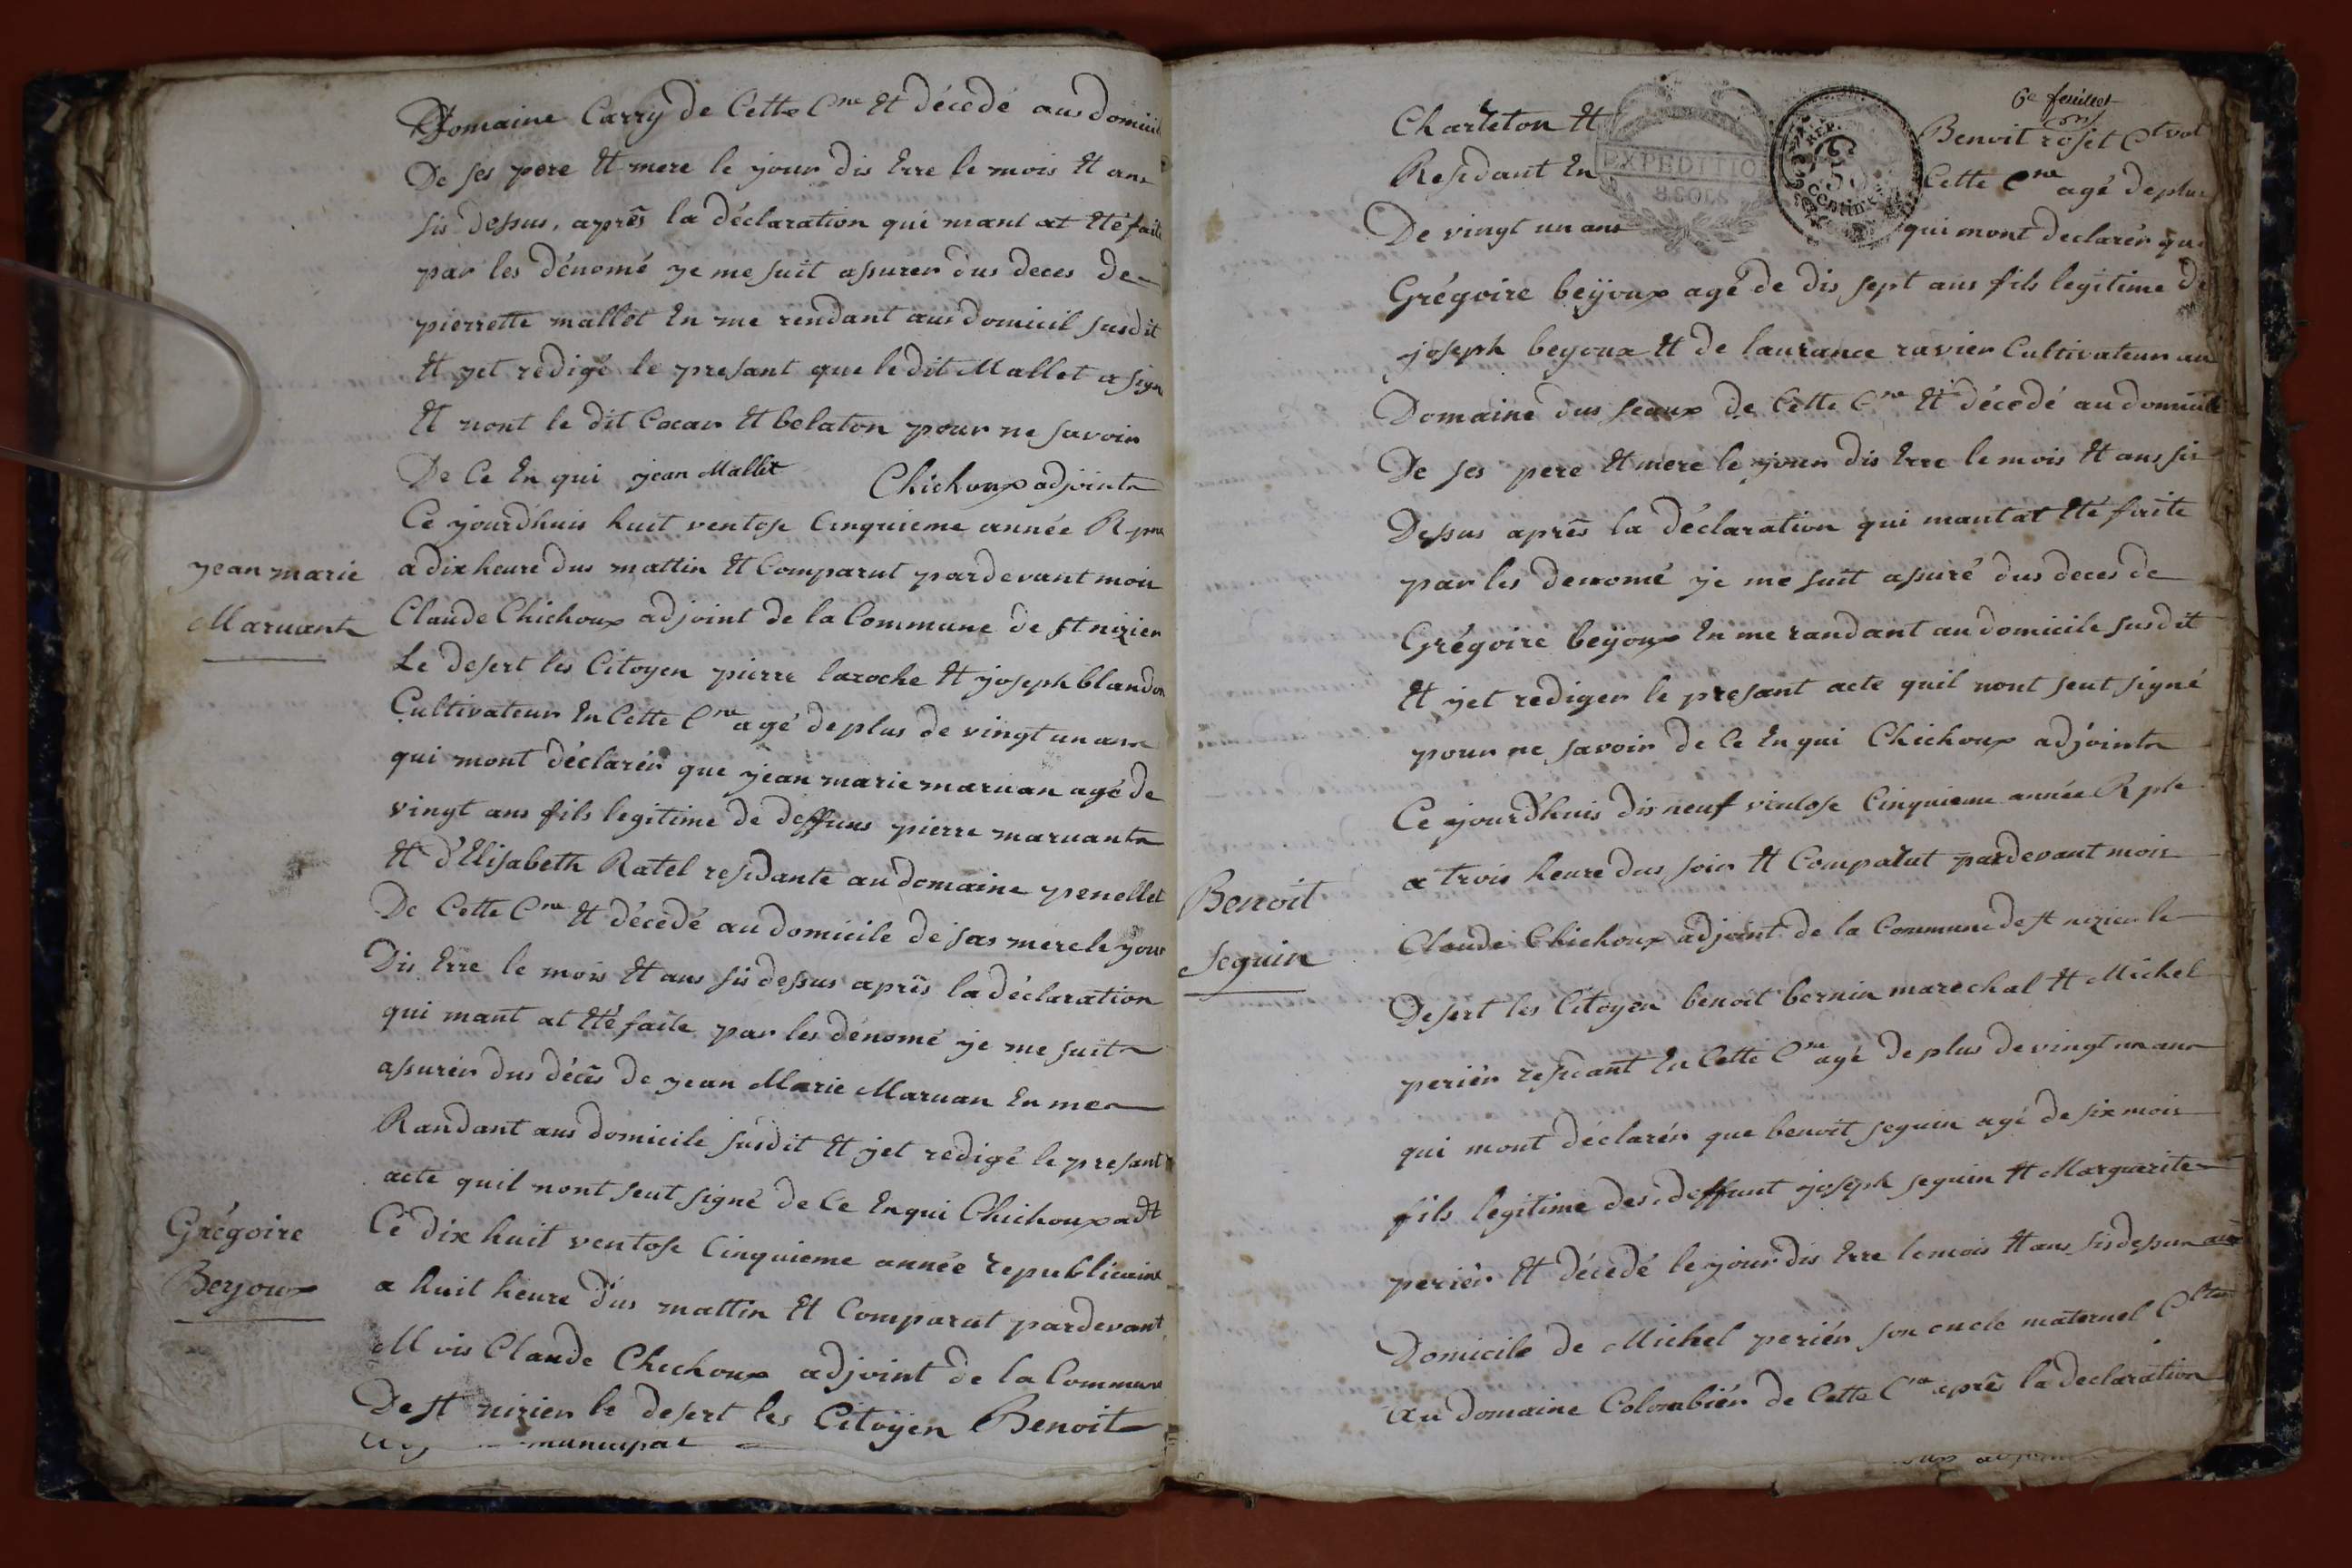 Domaine Carry de Cette Cne Et décedé aus domicil
De ses pere Et mere le jour dis Erre le mois Et ans
sis dessus, aprês la déclaration qui mant at Eté faite
par les dénomé je me suit assurer dus deces de
pierrette mallet En me rendant aus domicil susdit
Et jet redigé le presant que le dit Mallet a signé
Et nont le dit Cocar Et belaton pour ne savoir
De Ce En qui jean Mallet Chichoux adjoint
Ce jourdhuis huit ventose Cinquieme année Rpne
jean marie
Maruant
a dix heure dus mattin Et Comparut pardevant moi
Claude Chichoux adjoint de la Commune de st nizier
Le desert les Citoyen pierre laroche Et joseph blandon
Cultivateur En Cette Cne agé de plus de vingt un ans
qui mont déclarér que jean marie maruan agé de
vingt ans fils legitime de deffuns pierre maruant
Et d'Elisabeth Ratel residante au domaine penellet
De Cette Cne Et décedé au domicile de sas mere le jour
Dis Erre le mois Et ans sis dessus aprês la déclaration
qui mant at Eté faite par les dénomé je me suit
assurér dus décês de jean Marie Maruan En me
Randant aus domicile susdit Et jet redigé le presant
acte quil nont seut signé de Ce En qui Chichoux adt
Grégoire
Beyoux
Ce dix huit ventose Cinquieme année republicaine
a huit heure dus mattin Et Comparut pardevant
Mois Claude Chichoux adjoint de la Commune
De st nizier le desert les Citoÿen Benoit
municipal
6e feuillet
Charleton Et Benoit roset Ctvat
EXPEDITION
8 SOLS
REP.
Centimes
Residant En Cette Cne agé de plus
De vingt un ans qui mont declarér que
Grégoire beÿoux agé de dis sept ans fils legitime de
joseph beyoux Et de laurance ravier Cultivateur au
Domaine dus seaux de Cette Cne Et décedé au domicile
De ses pere Et mere le jour dis Erre le mois Et ans sis
Dessus aprês la déclaration qui mant at Eté faite
par les denomé je me suit assuré dus deces de
Grégoire beÿoux En me randant au domicile susdit
Et jet rediger le presant acte quil nont seut signé
pour ne savoir de Ce En qui Chichoux adjoint
Ce jourdhuis dis neuf ventose Cinquieme année Rple
Benoit
Seguin
a trois heure dus soir Et Comparut pardevant mois
Claude Chichoux adjoint de la Commune de st nizier le
Desert les Citoyen benoit bernin marechal Et Michel
periér residant En Cette Cne agé de plus de vingt un ans
qui mont déclarér que benoit seguin agé de six mois
fils legitime des deffunt joseph seguin Et Marguerite
periér Et décedé le jour dis Erre le mois Et ans sis dessus aus
Domicile de Michel periér son oncle maternel Clteur
Au domaine Colombiér de Cette Cne aprês la declaration